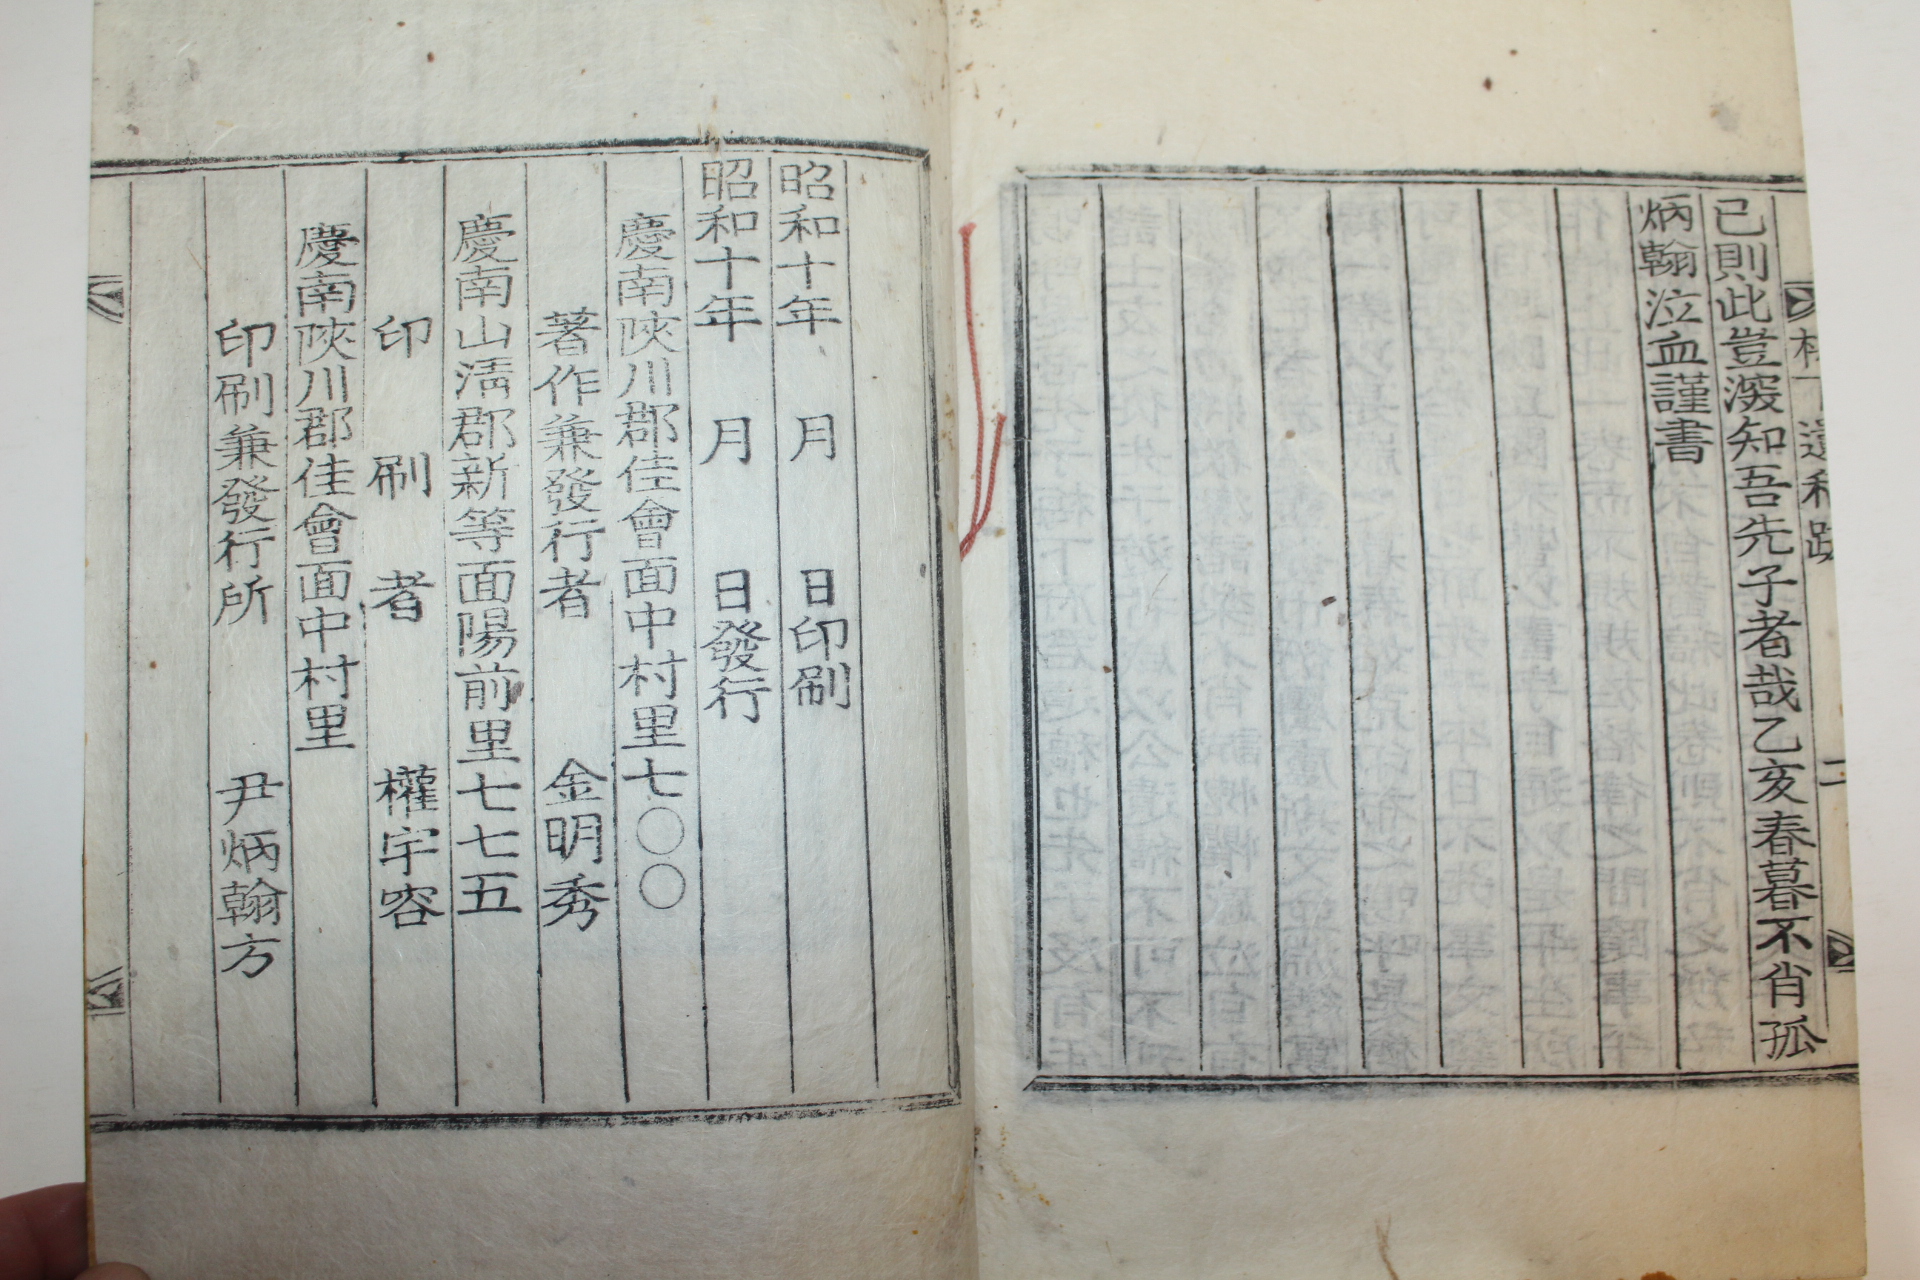 已則此豈深知吾先子者哉乙亥春暮不肖孤
炳翰泣血謹書
昭和十年 月 日印刷
昭和十年 月 日發行
慶南陜川郡佳會面中村里七〇〇
著作兼發行者 金明秀
慶南山淸郡新等面陽前里七七五
印刷者 權宇容
慶南陜川郡佳會面中村里
印刷兼發行所 尹炳翰方